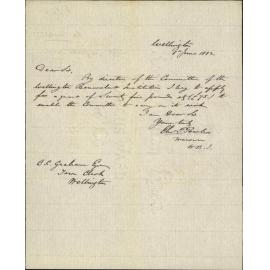 Wellington
8 June 1882
Dear Sir,
By direction of the Committee of the
Wellington Benevolent Institution I beg to apply
for a grant of Seventy five pounds (£75) to
enable the Committee to carry on its work
I am Dear Sir
Yours truly
W.B.I.
C.C. Graham Esq
Town Clerk
Wellington